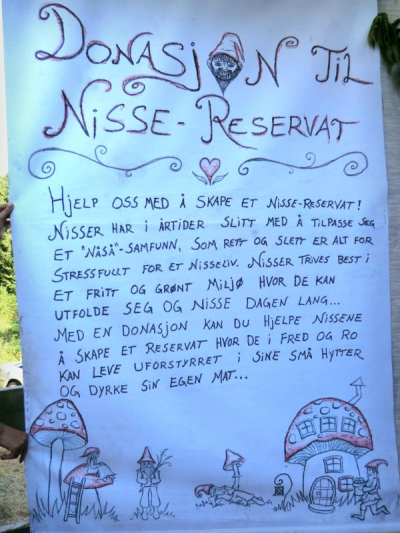 DONASJON TIL
NISSE-RESERVAT
HJELP OSS MED Å SKAPE ET NISSE-RESERVAT!
NISSER HAR I ÅRTIDER SLITT MED Å TILPASSE SEG
ET "NÅSÅ"-SAMFUNN, SOM RETT OG SLETT ER ALT FOR
STRESSFULLT FOR ET NISSELIV. NISSER TRIVES BEST I
ET FRITT OG GRØNT MILJØ HVOR DE KAN
UTFOLDE SEG OG NISSE DAGEN LANG...
MED EN DONASJON KAN DU HJELPE NISSENE
Å SKAPE ET RESERVAT HVOR DE I FRED OG RO
KAN LEVE UFORSTYRRET I SINE SMÅ HYTTER
OG DYRKE SIN EGEN MAT...